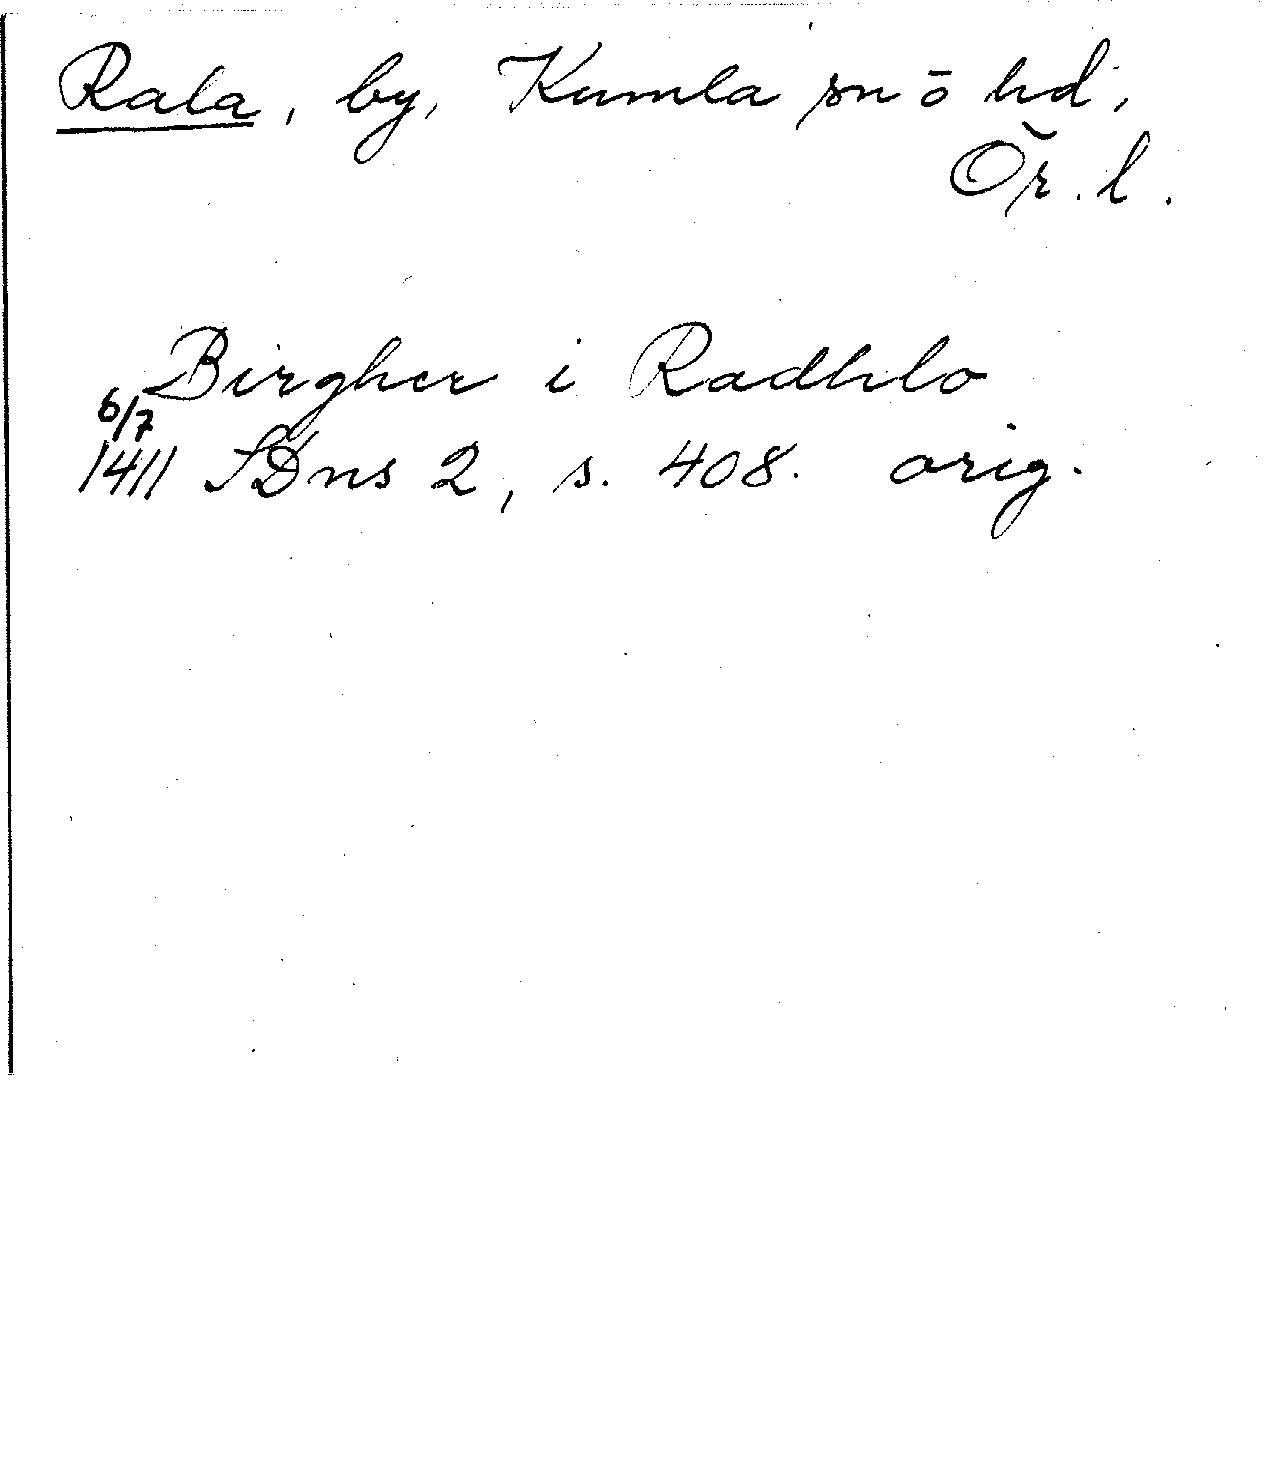 Rala, by, Kumla sn ō hd,
Ör. l.
Birgher i Radhlo
6/7
1411 SDns 2, s. 408. orig.